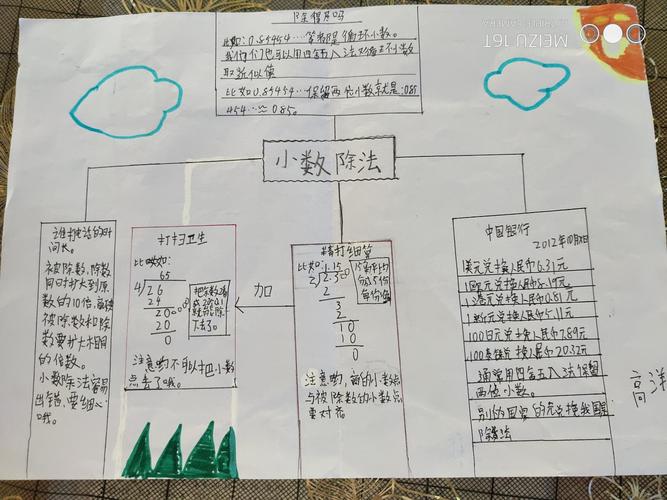 除得尽吗
比如:0.85454…等都是循环小数。
我们也可以用四舍五入法对循环小数
取近似值
比如0.85454…保留两位小数就是:0.85
454…≈0.85。
MEIZU 16T
小数除法
谁打电话的时
间长。
被除数,除数
同时扩大到原
数的10倍,
被除数和除
数要扩大相同
的倍数。
小数除法容易
出错,要细心
哦。
打扫卫生
比如:
65
4)26
24
20
20
0
注意哟不可以把小数
点丢了哦。
加
精打细算
比如:1.15
2)2.30
2
3
2
10
10
0
注意哟,商的小数点
与被除数的小数点
要对齐
中国银行
2012年10月
1美元兑换人民币6.31元
1欧元兑换人民币8.19元
1港元兑换人民币0.81元
1新元兑换人民币5.11元
100日元兑换人民币7.89元
100泰铢兑换人民币20.32元
通常用四舍五入法保留
两位小数。
别的国家的元兑换我国
除法
高洋